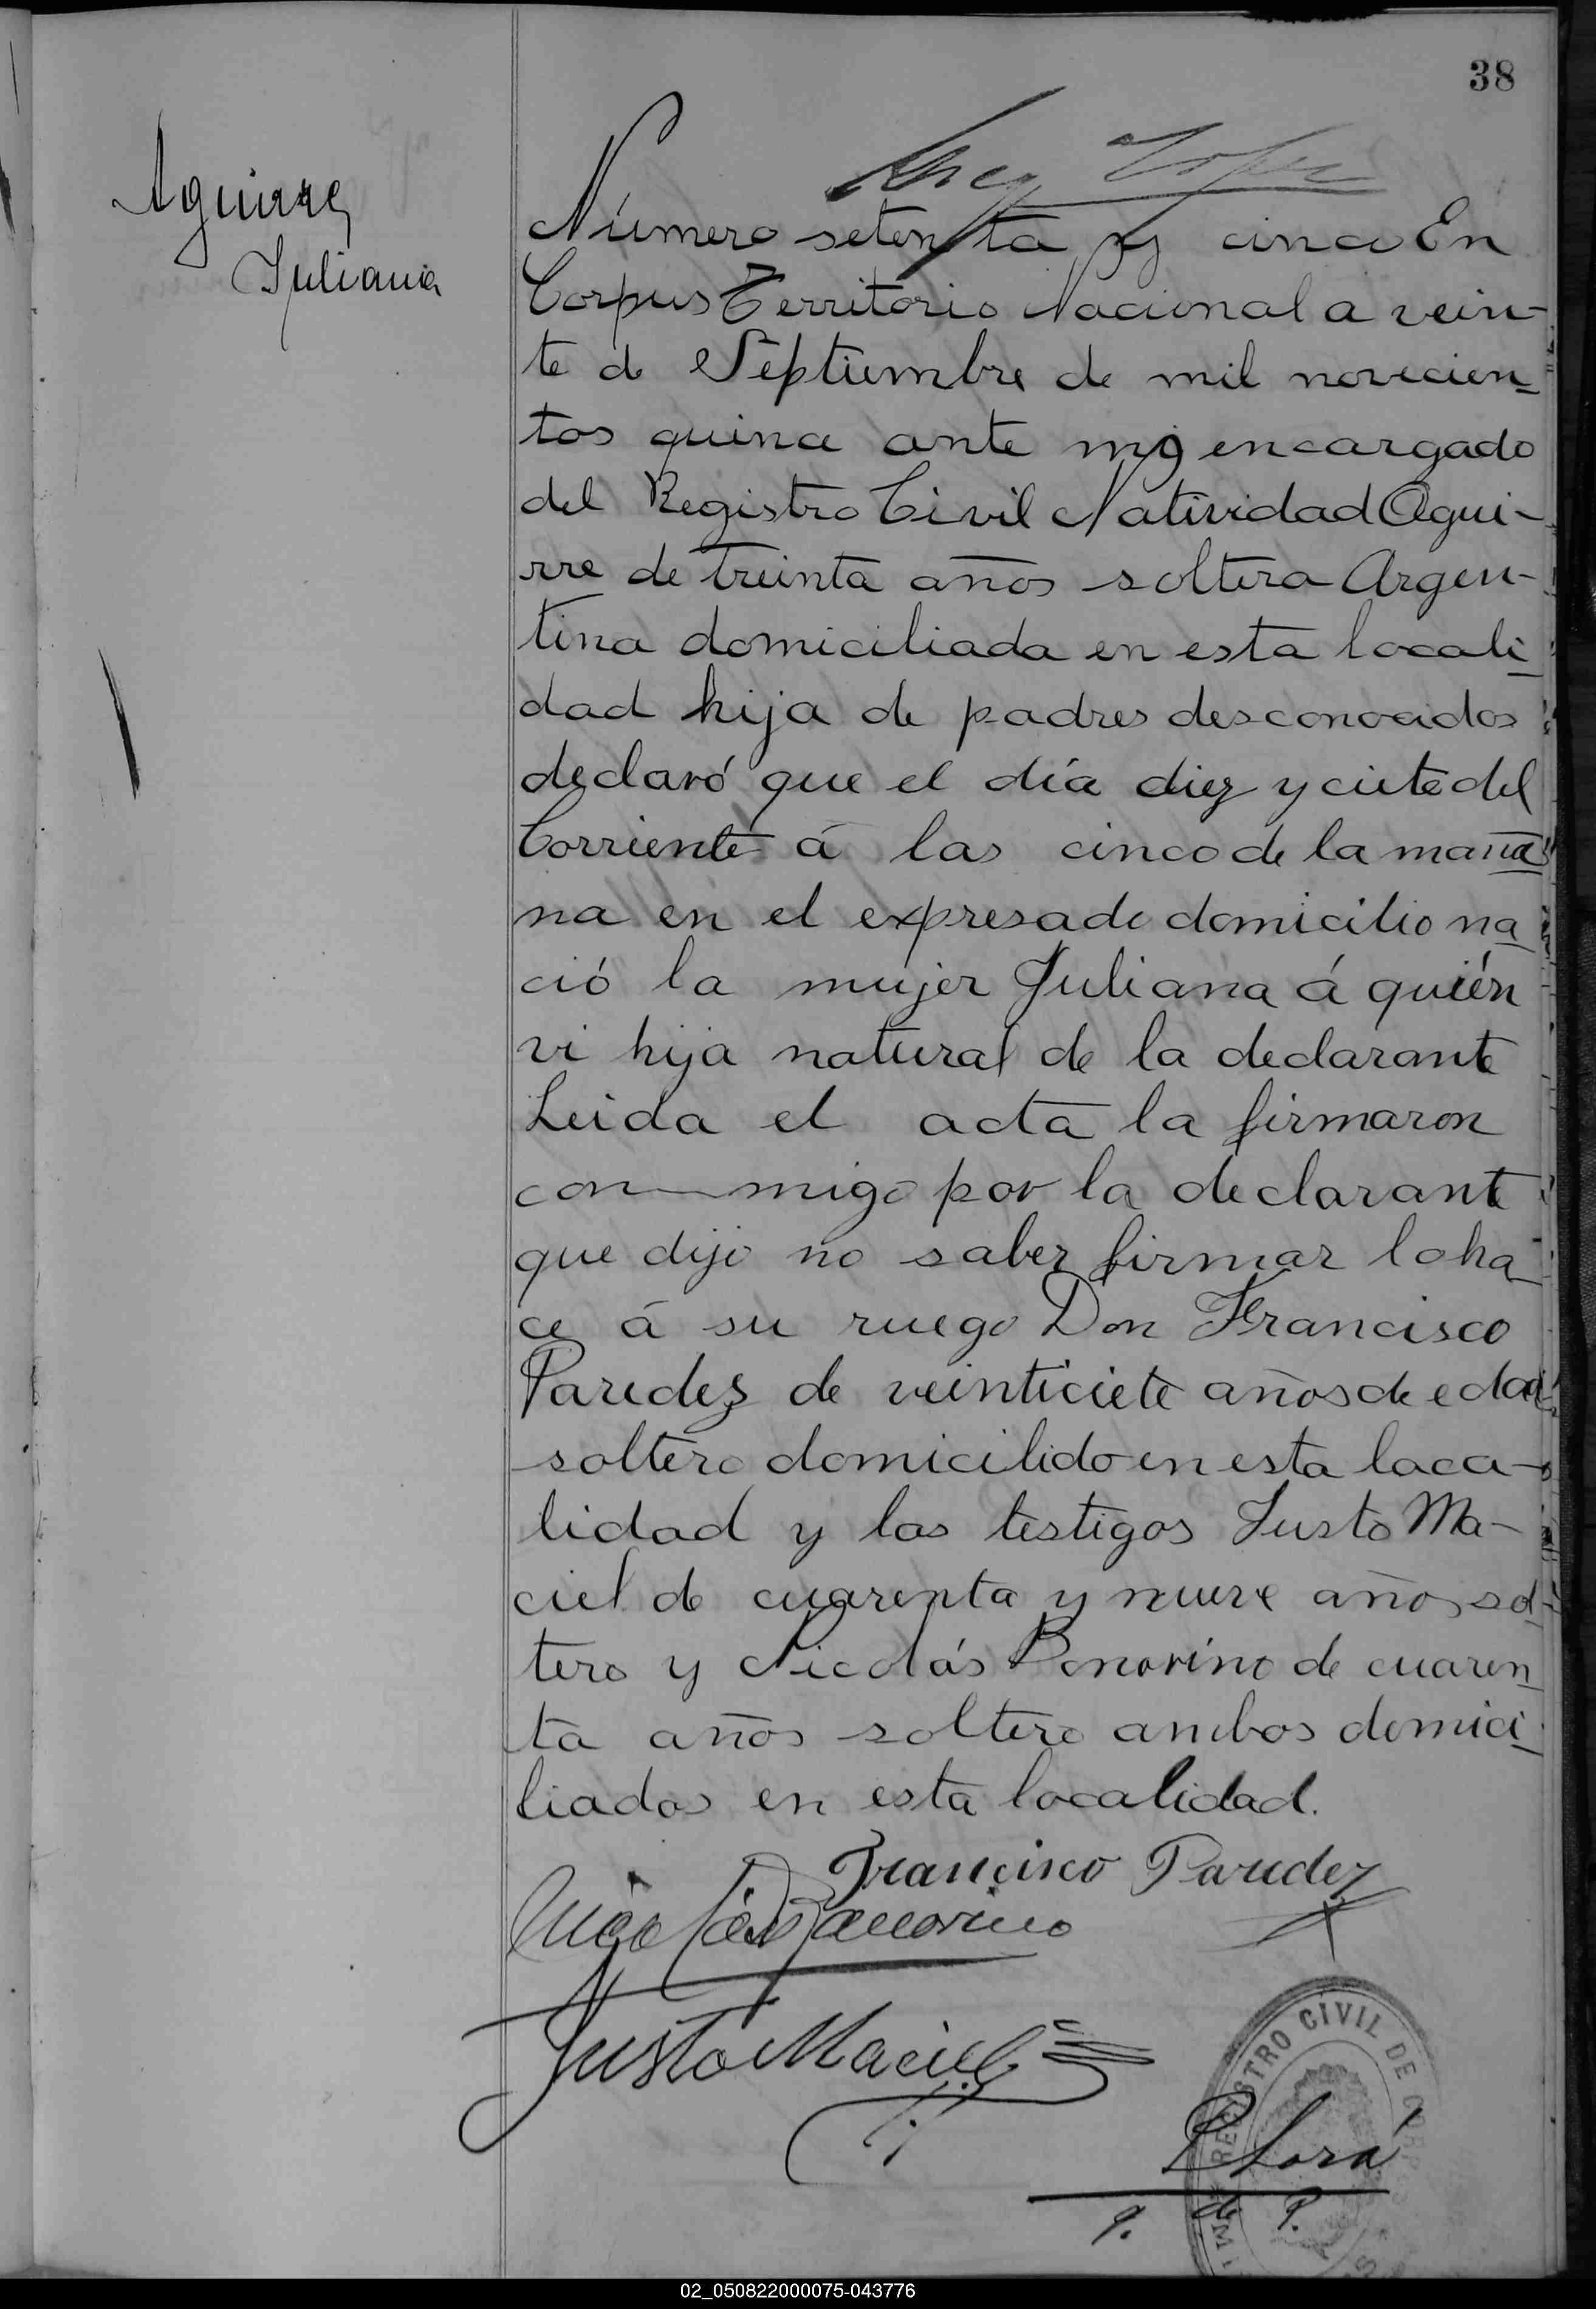 38
Aguirre
Juliana
Número setenta y cinco En
Corpus Territorio Nacional a vein-
te de Septiembre de mil novecien-
tos quince ante mí encargado
del Registro Civil Natividad Agui-
rre de treinta años soltera Argen-
tina domiciliada en esta locali-
dad hija de padres desconocidos
declaró que el día diez y ciete del
Corriente á las cinco de la maña
na en el expresado domicilio na
ció la mujer Juliana á quién
vi hija natural de la declarante
Leida el acta la firmaron
con migo por la declarante
que dijo no saber firmar lo ha
ce á su ruego Don Francisco
Paredez de veinticiete años de edad
soltero domicilido en esta loca-
lidad y los testigos Justo Ma-
ciel de cuarenta y nueve años sol-
tero y Nicolás Bonorino de cuaren
ta años soltero ambos domici
liados en esta localidad.
Francisco Paredez
Nicolás Bonorino
Justo Maciel
REGISTRO CIVIL DE CORPUS
P Lorá
J. de P.
02_050822000075-043776